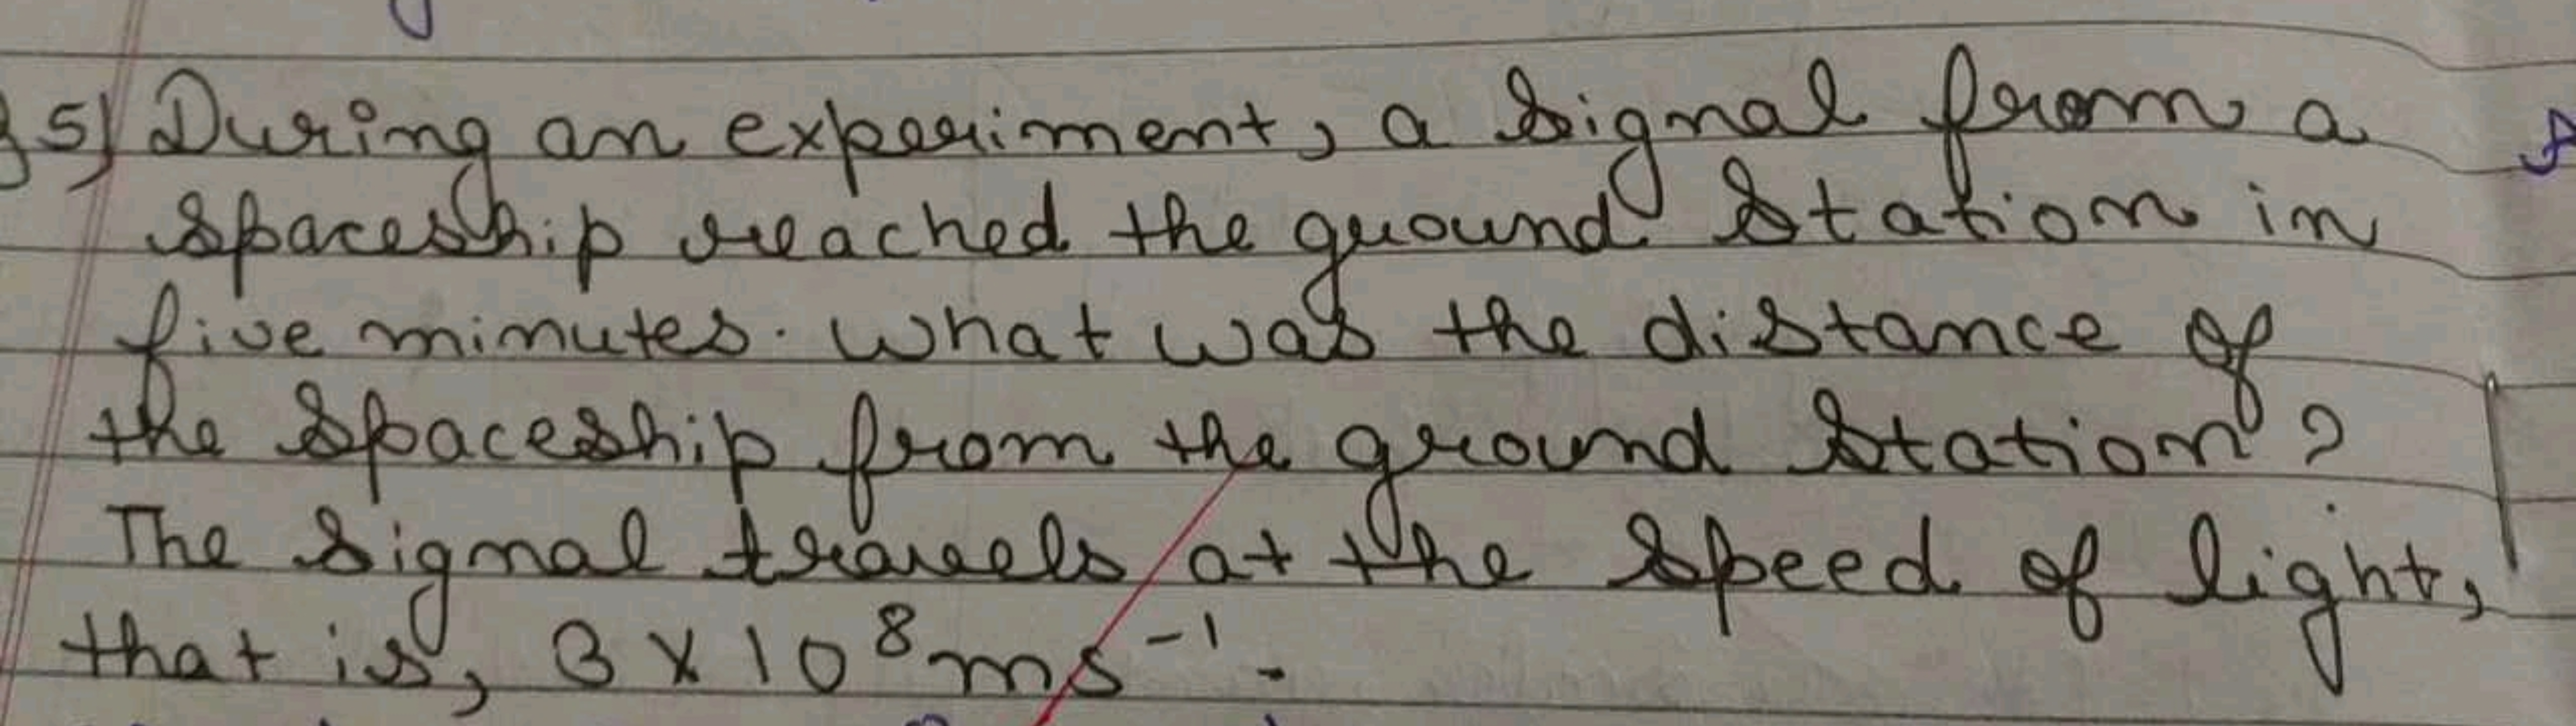 5) During an experiment, a signal from a
spaceship reached the ground station in
five minutes. What was the distance of
the spaceship from the ground station?
The signal travels at the speed of light,
that is, 3 X 10⁸ ms⁻¹.